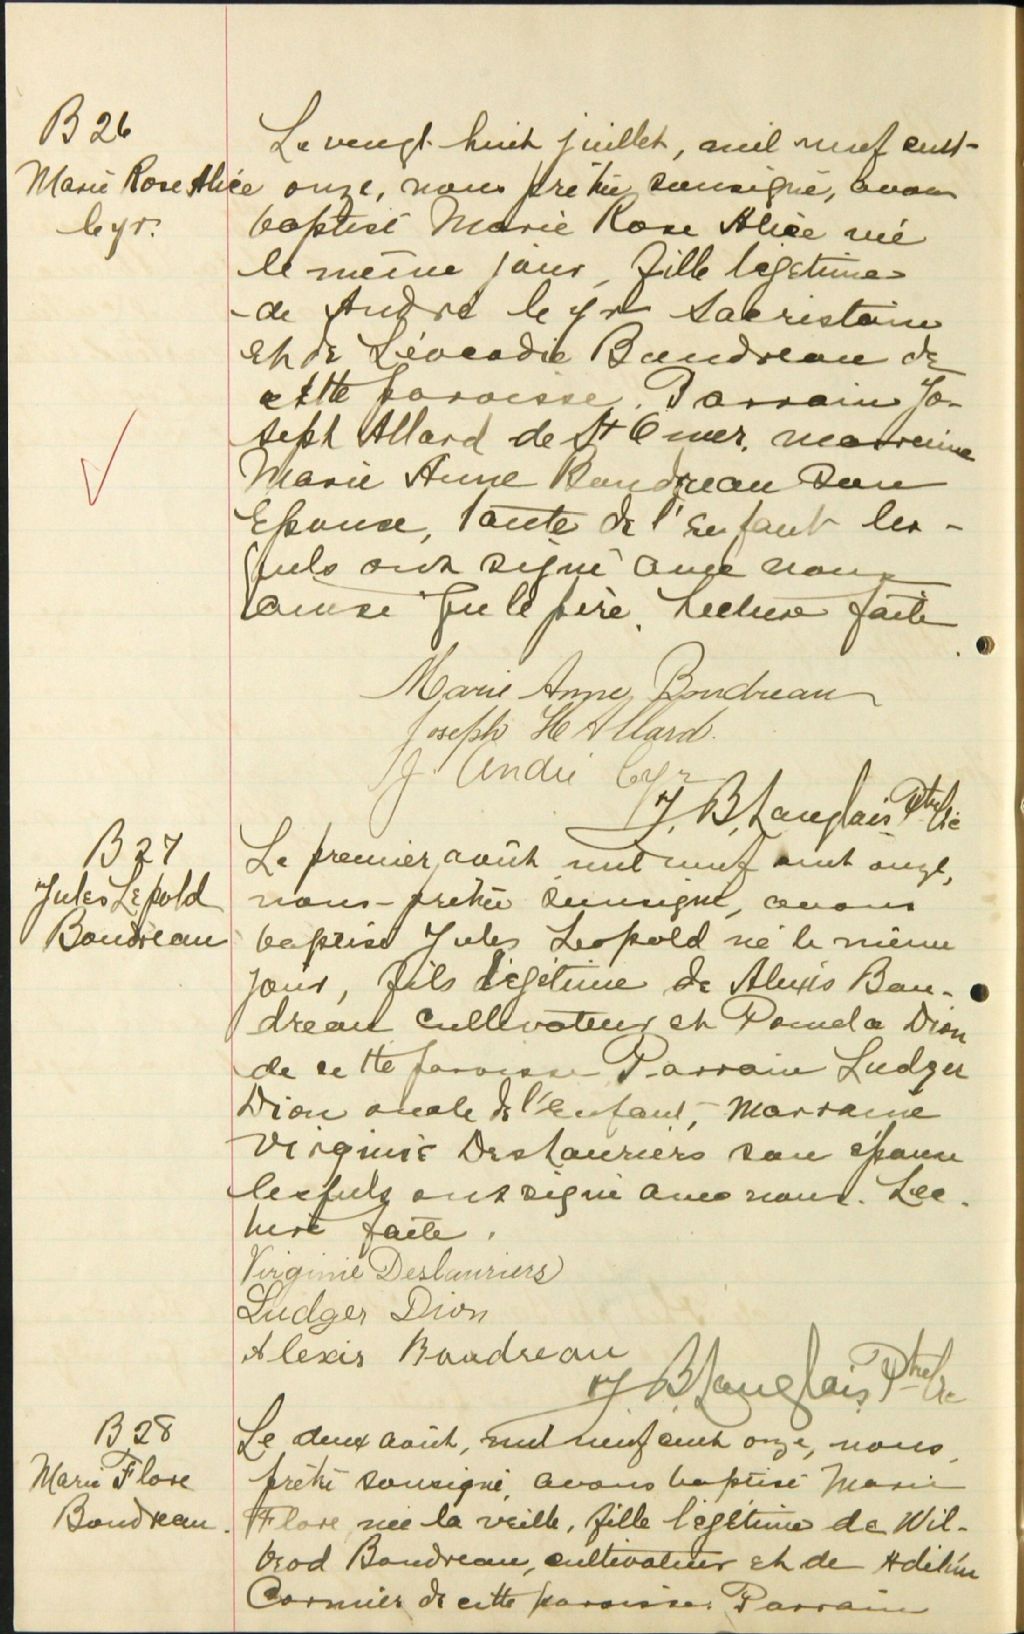 B 26
Marie Rose Alice
Cyr.
Le vingt-huit juillet, mil neuf cent-
onze, nous prêtre soussigné, avons
baptisé Marie Rose Alice née
le même jour, fille légitime
de André Cyr sacristain
et de Léocadie Boudreau de
cette paroisse. Parrain Jo-
seph Allard de St Omer, marraine
Marie Anne Boudreau son
épouse, tante de l'enfant les-
quels ont signé avec nous
ainsi que le père. Lecture faite
Marie Anne Boudreau
Joseph H Allard.
J. André Cyr
J. B. Langlais Ptre
B 27
Jules Lepold
Boudreau
Le premier août mil neuf cent onze,
nous prêtre soussigné, avons
baptisé Jules Leopold né le même
jour, fils légitime de Alexis Bou-
dreau cultivateur et Pomela Dion
de cette paroisse Parrain Ludger
Dion oncle de l'enfant, Marraine
Virginie DesLauriers son épouse
lesquels ont signé avec nous. Lec-
ture faite.
Virginie Deslauriers
Ludger Dion
Alexis Boudreau
J. B Langlais Ptre
B 28
Marie Flore
Boudreau.
Le deux août, mil neuf cent onze, nous,
prêtre soussigné, avons baptisé Marie
Flore née la veille, fille légitime de Wil-
brod Boudreau, cultivateur et de
Cormier de cette paroisse. Parrain